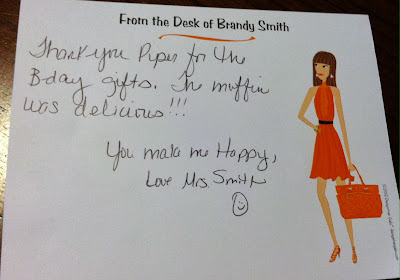 From the Desk of Brandy Smith
Thank you Piper for the
B-day gifts. The muffin
was delicious!!!
You make me Happy,
Love Mrs. Smith